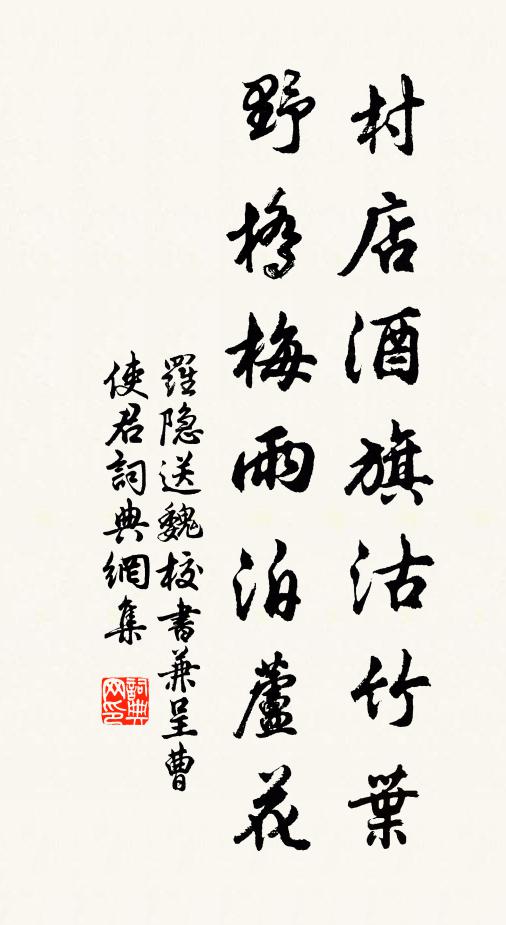 村店酒旗沽竹葉
野橋梅雨泊蘆花
羅隐送魏校書兼呈曹
使君詞典網集
詞典
网印